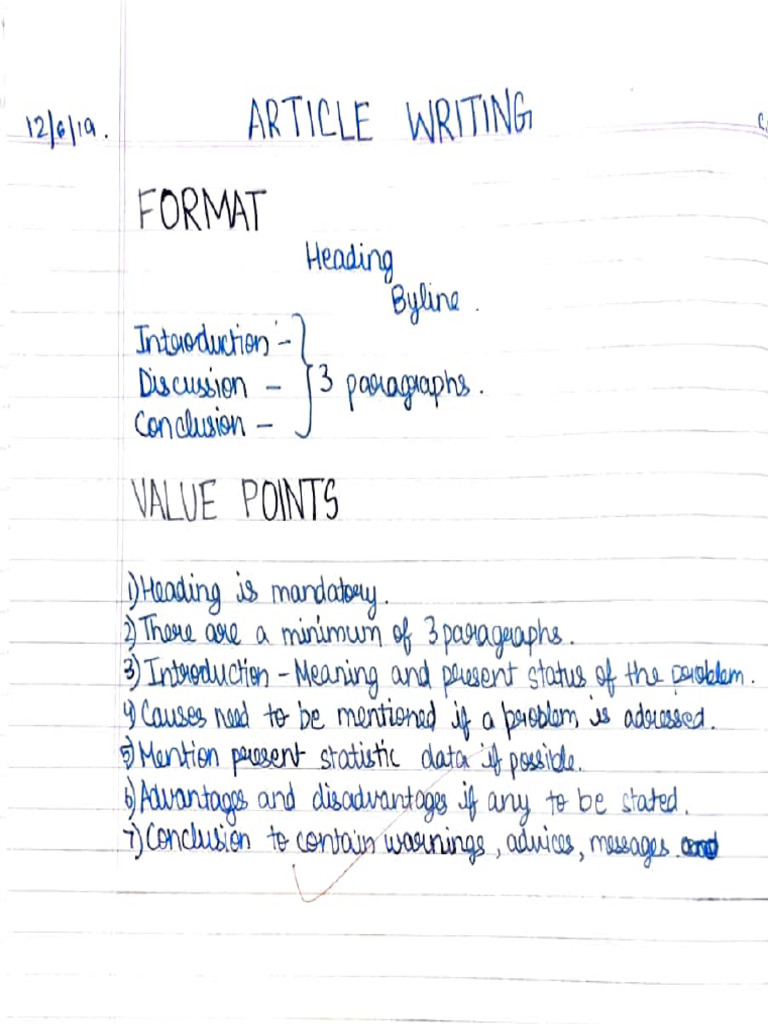 12/6/19.
ARTICLE WRITING
FORMAT
Heading
Byline.
Introduction -
Discussion - 3 paragraphs.
Conclusion -
VALUE POINTS
1) Heading is mandatory.
2) There are a minimum of 3 paragraphs.
3) Introduction - Meaning and present status of the problem.
4) Causes need to be mentioned if a problem is adressed.
5) Mention present statistic data if possible.
6) Advantages and disadvantages if any to be stated.
7) Conclusion to contain warnings, advices, messages.